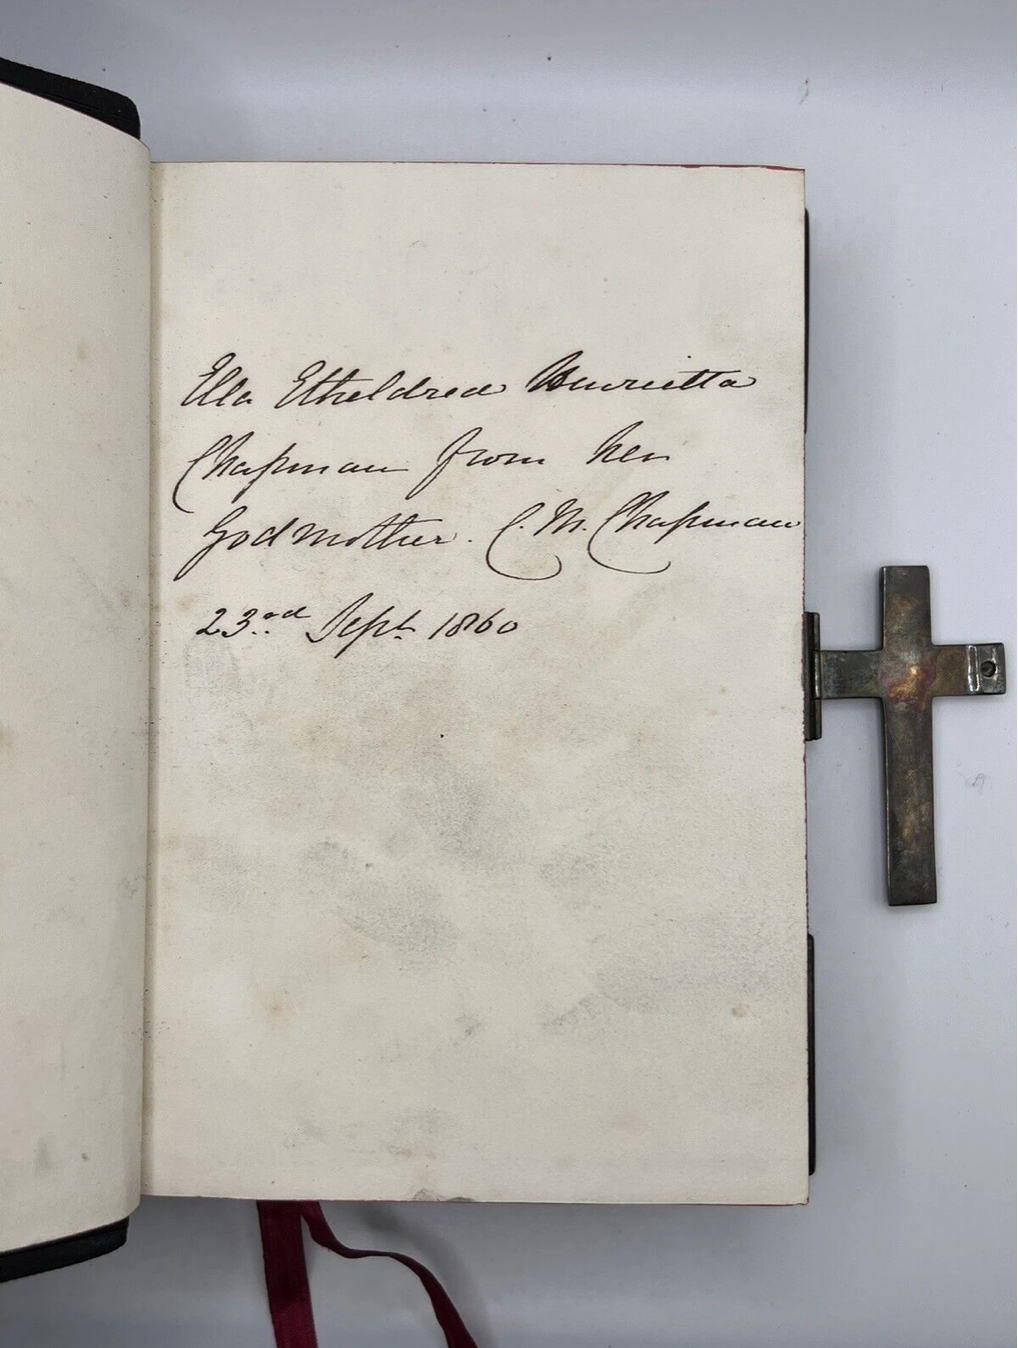 Ella Etheldred Henrietta
Chapman from her
Godmother. C. M. Chapman
23rd Sept. 1860